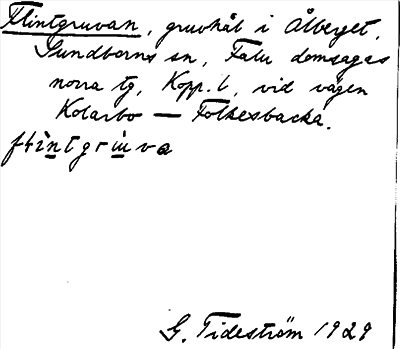 Flintgruvan, gruvhål i Ålberget,
Sundborns sn, Falu domsagas
norra tg, Kopp. l, vid vägen
Kolarbo — Folkesbacka.
G. Tideström 1929